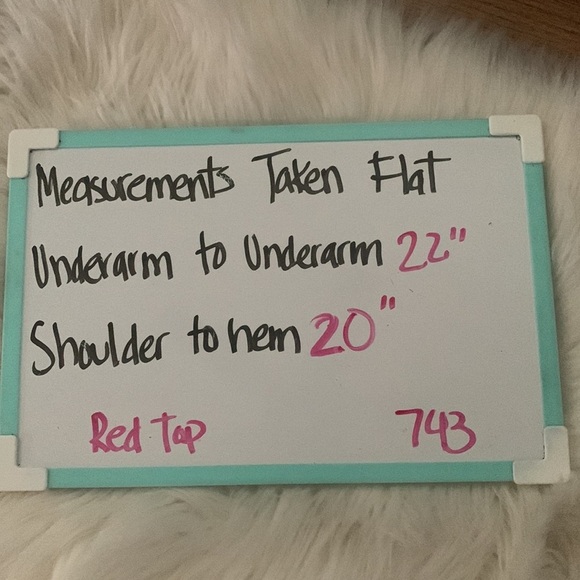 Measurements Taken Flat
Underarm to Underarm 22"
Shoulder to hem 20"
Red Top 743